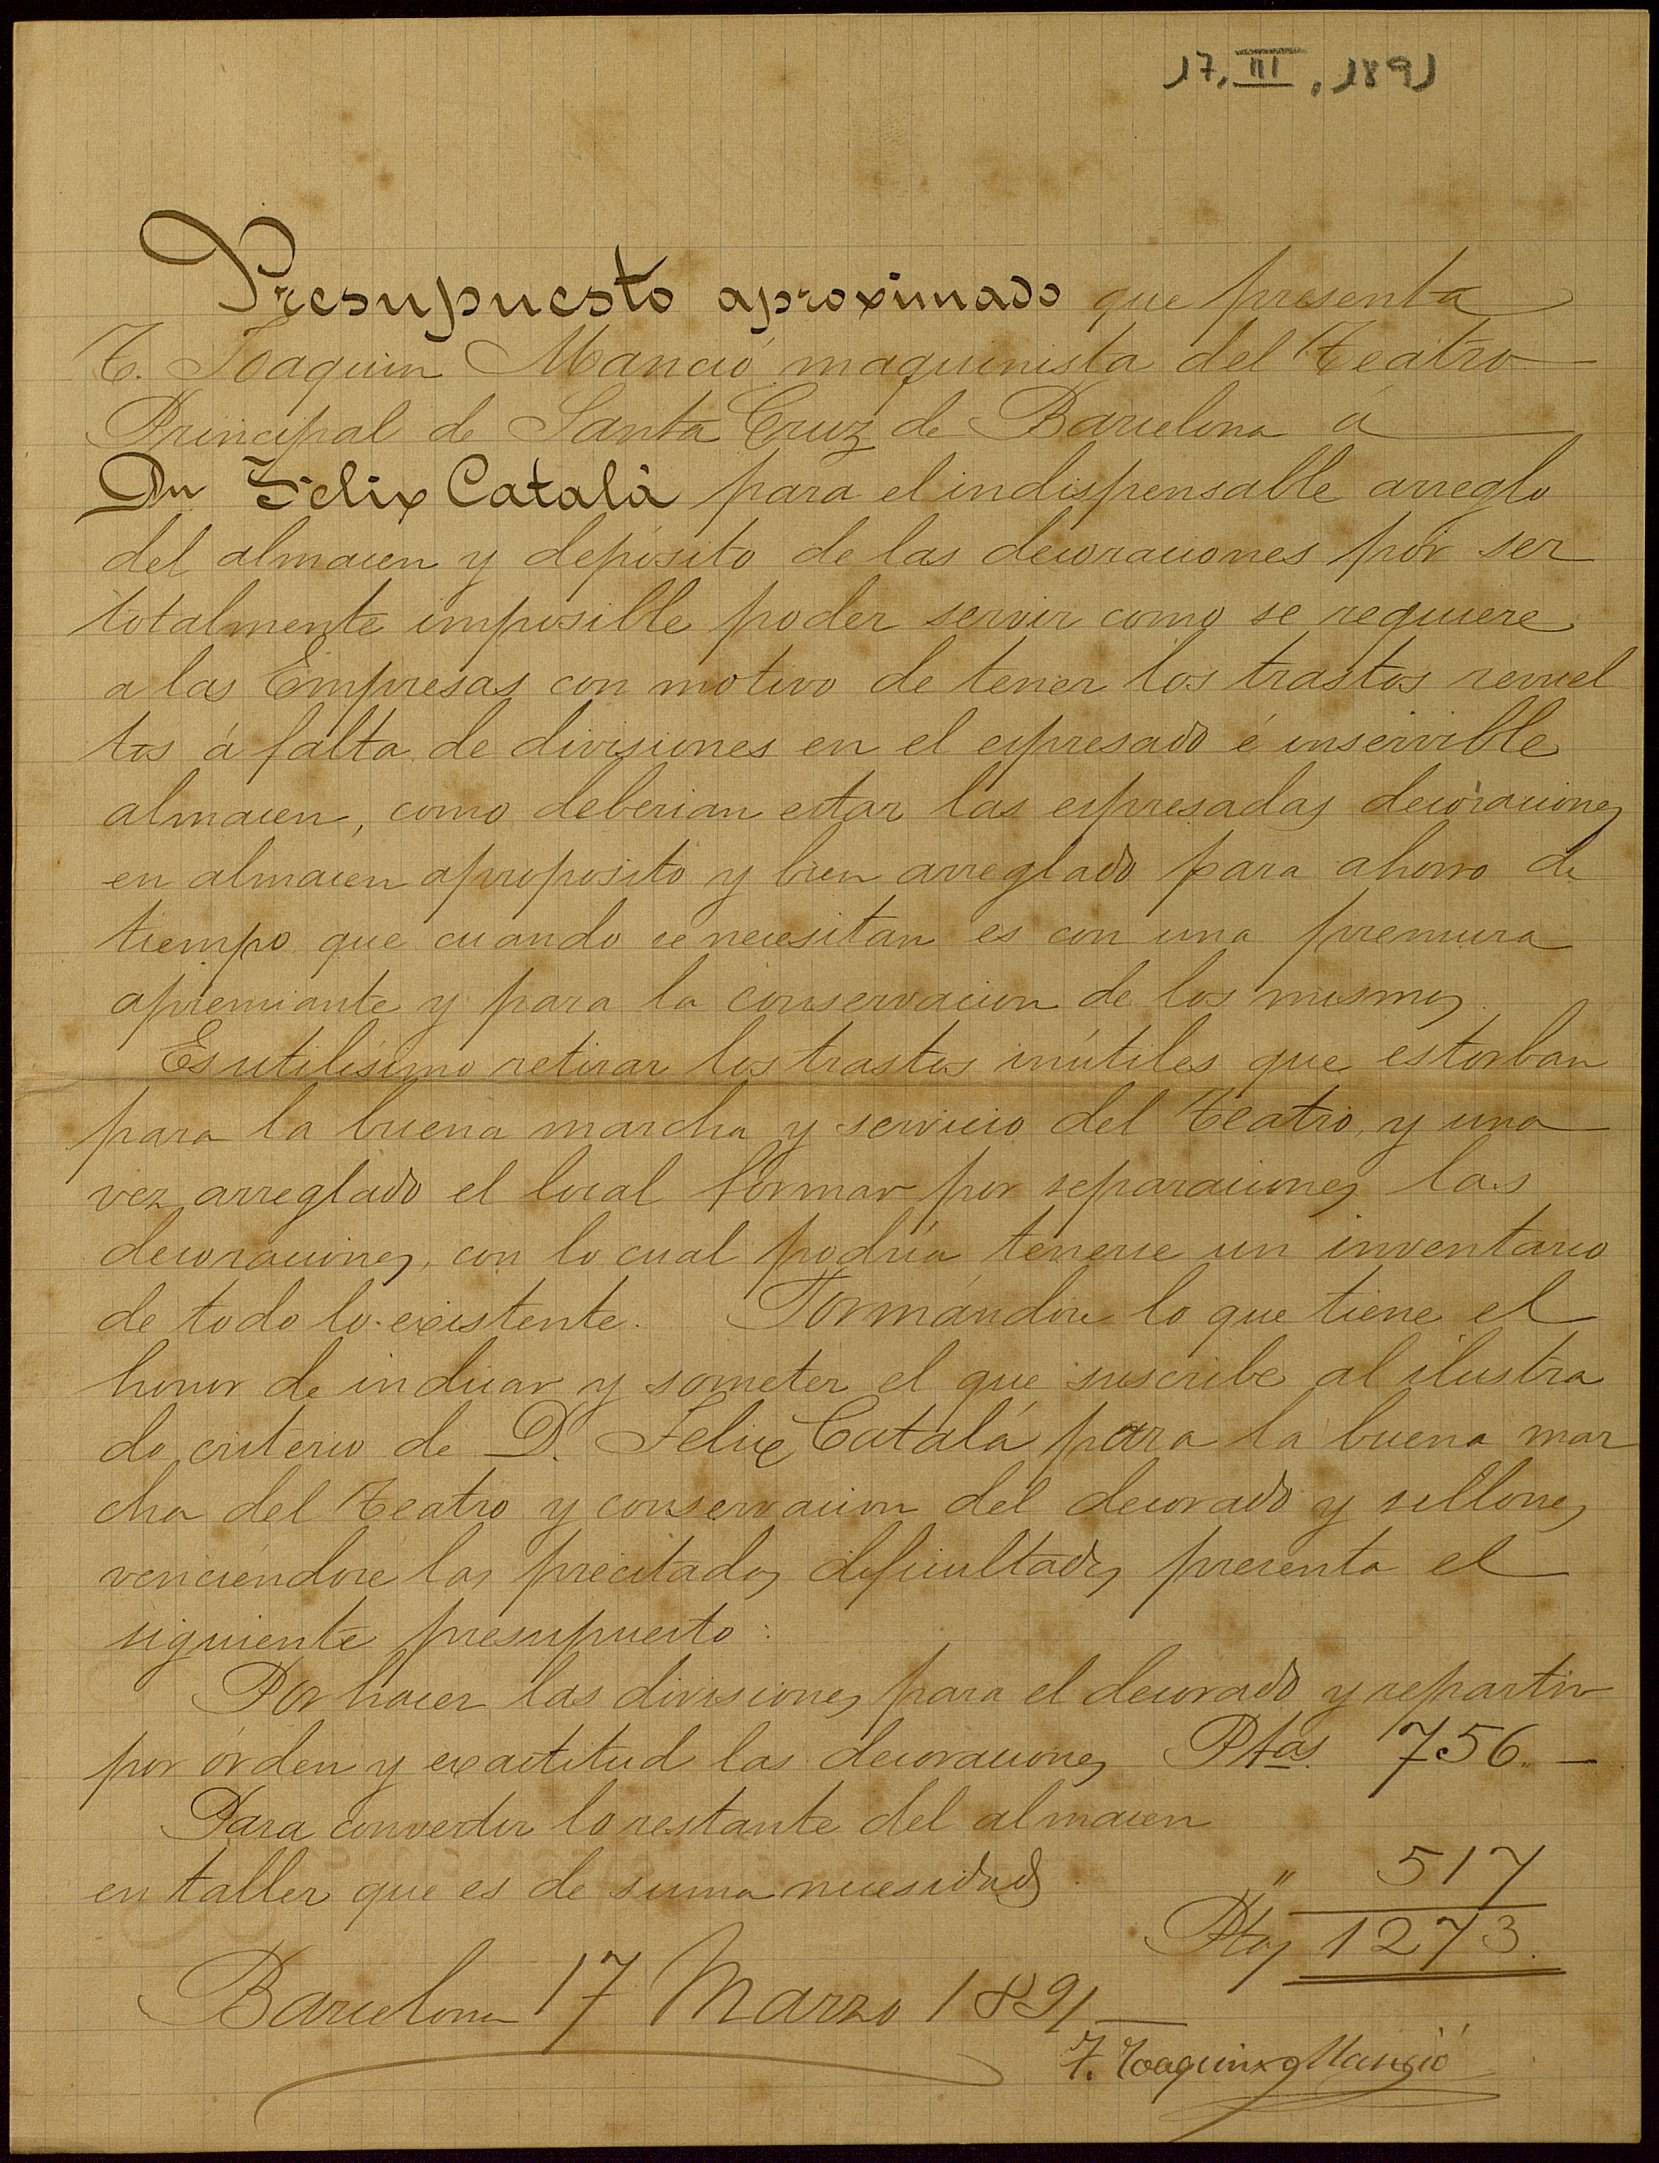 17, III, 1891
Presupuesto aproximado que presenta
F. Joaquin Manció maquinista del Teatro
Principal de Santa Cruz de Barcelona á
Dn Felix Catalá para el indispensable arreglo
del almacen y depósito de las decoraciones por ser
totalmente imposible poder servir como se requiere
a las Empresas con motivo de tener los trastos revuel
tos á falta de divisiones en el espresado é inservible
almacen, como deberian estar las espresadas decoraciones
en almacen aproposito y bien arreglado para ahorro de
tiempo que cuando se necesitan es con una premura
apremiante y para la conservacion de los mismos.
Es utilísimo retirar los trastos inútiles que estorban
para la buena marcha y servicio del Teatro, y una
vez arreglado el local formar por separaciones las
decoraciones, con lo cual podría tenerse un inventario
de todo lo existente. Formándose lo que tiene el
honor de indicar y someter el que suscribe al ilustra
do criterio de D. Felix Catalá para la buena mar
cha del Teatro y conservacion del decorado y sillones
venciéndose las precitadas dificultades presenta el
siguiente presupuesto:
Por hacer las divisiones para el decorado y repartir
por órden y exactitud las decoraciones Ptas. 756 " —
Para convertir lo restante del almacen
en taller que es de suma necesidad. " 517
Ptas 1273.
Barcelona 17 Marzo 1891
F. Joaquin Manció